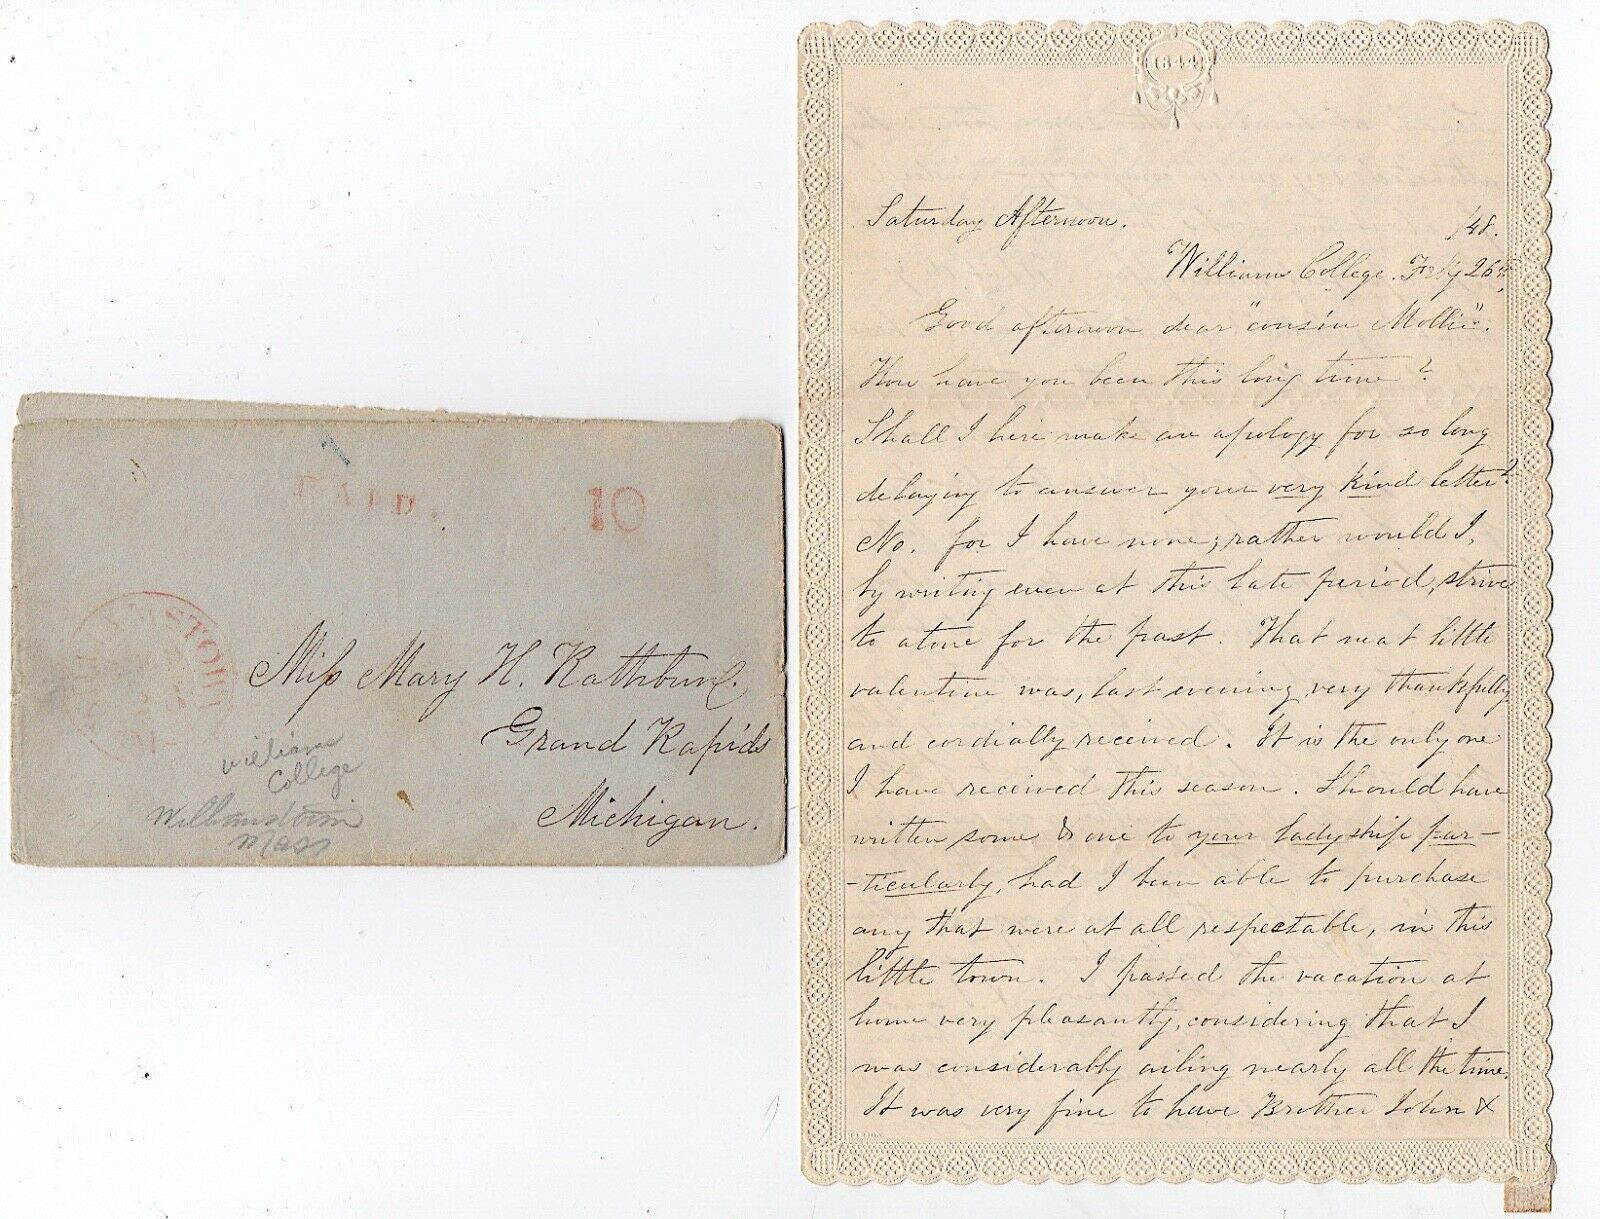 PAID.
10
Miss Mary H. Rathbun.
Grand Rapids
Michigan.
Williams
College
Williamstown
Mass
1844
Saturday Afternoon.
/48.
Williams College. Feby 26th,
Good afternoon dear "cousin Mollie".
How have you been this long time?
Shall I here make an apology for so long
delaying to answer your very kind letter?
No. for I have none; rather would I,
by writing even at this late period, strive
to atone for the past. That neat little
valentine was, last evening, very thankfully
and cordially received. It is the only one
I have received this season. Should have
written some & one to your ladyship par-
-ticularly, had I been able to purchase
any that were at all respectable, in this
little town. I passed the vacation at
home very pleasantly, considering that I
was considerably ailing nearly all the time.
It was very fine to have Brother John &